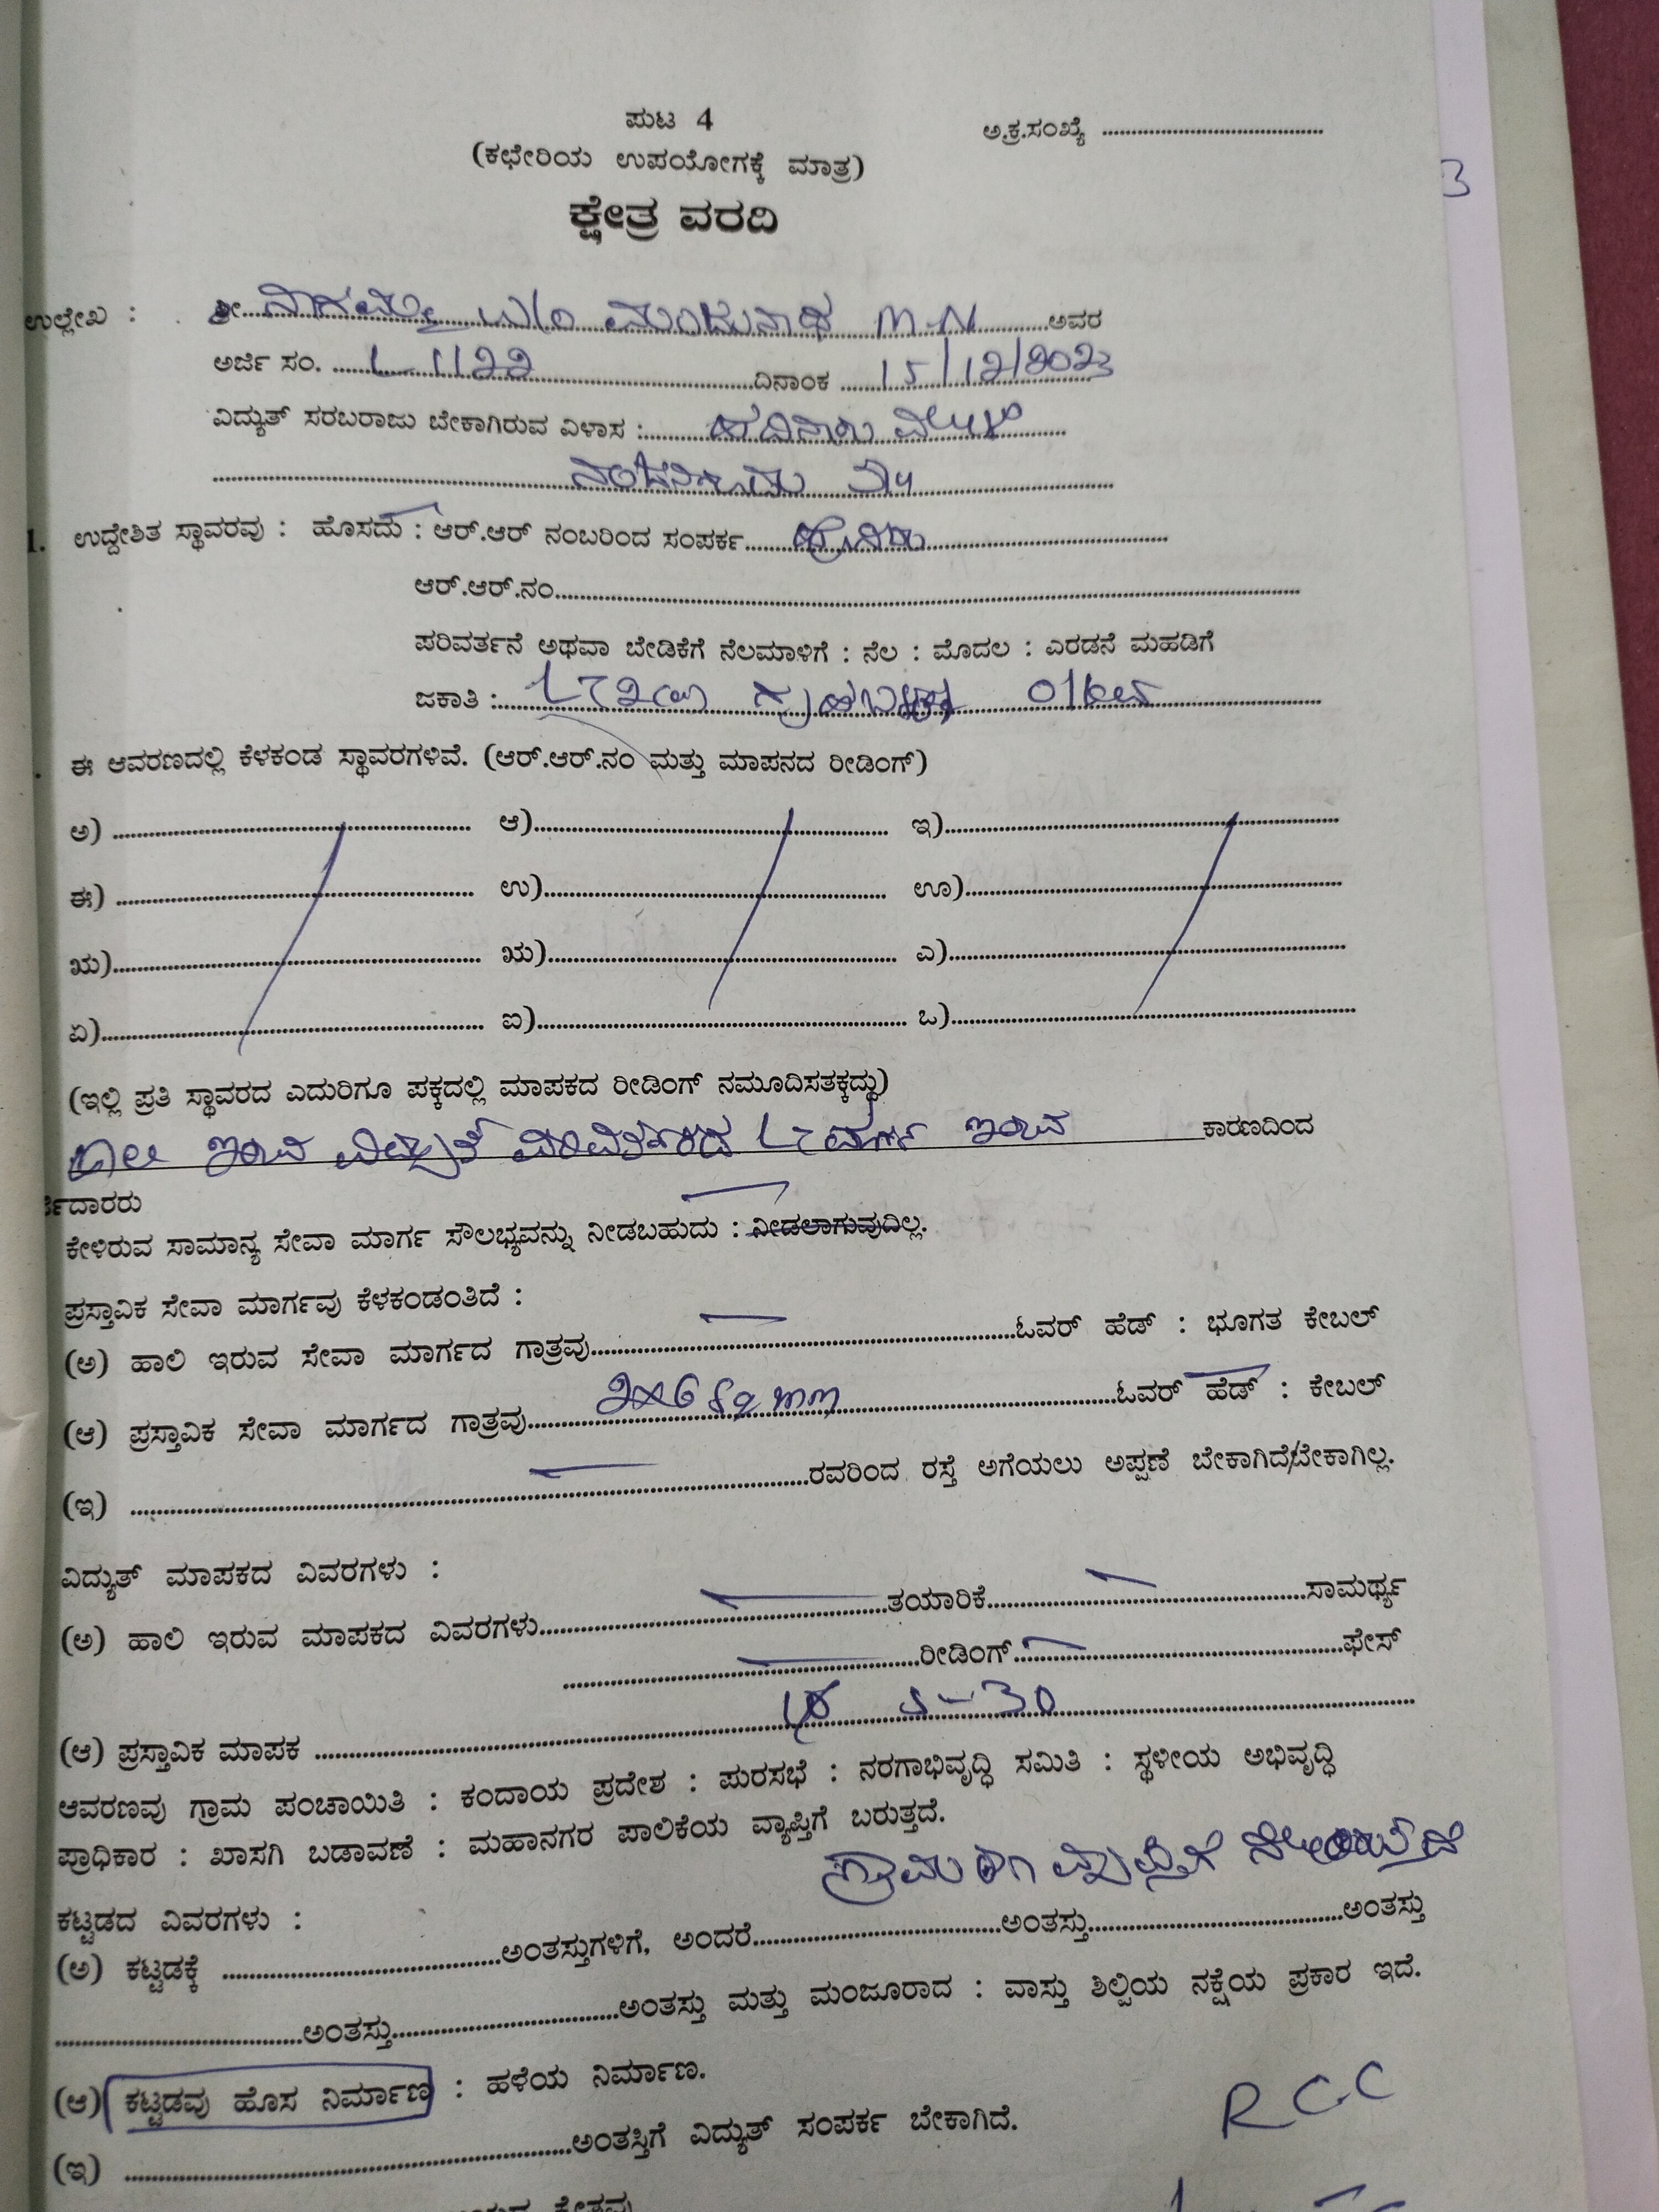 ಪುಟ 4
ಅ.ಕ್ರ.ಸಂಖ್ಯೆ ....................
(ಕಛೇರಿಯ ಉಪಯೋಗಕ್ಕೆ ಮಾತ್ರ)
3
ಕ್ಷೇತ್ರ ವರದಿ
ಉಲ್ಲೇಖ : ಶ್ರೀ ನಾಗಮ್ಮ W/o ಮಂಜುನಾಥ M.N ಅವರ
ಅರ್ಜಿ ಸಂ. L-1122 ದಿನಾಂಕ 15/12/2023
ವಿದ್ಯುತ್ ಸರಬರಾಜು ಬೇಕಾಗಿರುವ ವಿಳಾಸ : ಹದಿನಾರು
1. ಉದ್ದೇಶಿತ ಸ್ಥಾವರವು : ಹೊಸದು : ಆರ್.ಆರ್ ನಂಬರಿಂದ ಸಂಪರ್ಕ
ಆರ್.ಆರ್.ನಂ....................
ಪರಿವರ್ತನೆ ಅಥವಾ ಬೇಡಿಕೆಗೆ ನೆಲಮಾಳಿಗೆ : ನೆಲ : ಮೊದಲ : ಎರಡನೆ ಮಹಡಿಗೆ
ಜಕಾತಿ :
ಈ ಆವರಣದಲ್ಲಿ ಕೆಳಕಂಡ ಸ್ಥಾವರಗಳಿವೆ. (ಆರ್.ಆರ್.ನಂ ಮತ್ತು ಮಾಪನದ ರೀಡಿಂಗ್)
ಅ) .................... ಆ).................... ಇ)....................
ಈ) .................... ಉ).................... ಊ)....................
ಋ).................... ಋ).................... ಎ)....................
ಏ).................... ಐ).................... ಒ)....................
(ಇಲ್ಲಿ ಪ್ರತಿ ಸ್ಥಾವರದ ಎದುರಿಗೂ ಪಕ್ಕದಲ್ಲಿ ಮಾಪಕದ ರೀಡಿಂಗ್ ನಮೂದಿಸತಕ್ಕದ್ದು)
ಇರುವ ವಿದ್ಯುತ್ ಇರುವ ಕಾರಣದಿಂದ
ರ್ಜಿದಾರರು
ಕೇಳಿರುವ ಸಾಮಾನ್ಯ ಸೇವಾ ಮಾರ್ಗ ಸೌಲಭ್ಯವನ್ನು ನೀಡಬಹುದು : ನೀಡಲಾಗುವುದಿಲ್ಲ.
ಪ್ರಸ್ತಾವಿಕ ಸೇವಾ ಮಾರ್ಗವು ಕೆಳಕಂಡಂತಿದೆ :
(ಅ) ಹಾಲಿ ಇರುವ ಸೇವಾ ಮಾರ್ಗದ ಗಾತ್ರವು....................ಓವರ್ ಹೆಡ್ : ಭೂಗತ ಕೇಬಲ್
(ಆ) ಪ್ರಸ್ತಾವಿಕ ಸೇವಾ ಮಾರ್ಗದ ಗಾತ್ರವು 2x6 sq mm ಓವರ್ ಹೆಡ್ : ಕೇಬಲ್
(ಇ) ....................ರವರಿಂದ ರಸ್ತೆ ಅಗೆಯಲು ಅಪ್ಪಣೆ ಬೇಕಾಗಿದೆ/ಬೇಕಾಗಿಲ್ಲ.
ವಿದ್ಯುತ್ ಮಾಪಕದ ವಿವರಗಳು :
(ಅ) ಹಾಲಿ ಇರುವ ಮಾಪಕದ ವಿವರಗಳು....................ತಯಾರಿಕೆ....................ಸಾಮರ್ಥ್ಯ
....................ರೀಡಿಂಗ್....................ಫೇಸ್
(ಆ) ಪ್ರಸ್ತಾವಿಕ ಮಾಪಕ 5-30
ಆವರಣವು ಗ್ರಾಮ ಪಂಚಾಯಿತಿ : ಕಂದಾಯ ಪ್ರದೇಶ : ಪುರಸಭೆ : ನರಗಾಭಿವೃದ್ಧಿ ಸಮಿತಿ : ಸ್ಥಳೀಯ ಅಭಿವೃದ್ಧಿ
ಪ್ರಾಧಿಕಾರ : ಖಾಸಗಿ ಬಡಾವಣೆ : ಮಹಾನಗರ ಪಾಲಿಕೆಯ ವ್ಯಾಪ್ತಿಗೆ ಬರುತ್ತದೆ.
ಗ್ರಾಮ ವ್ಯಾಪ್ತಿಗೆ
ಕಟ್ಟಡದ ವಿವರಗಳು :
(ಅ) ಕಟ್ಟಡಕ್ಕೆ ....................ಅಂತಸ್ತುಗಳಿಗೆ, ಅಂದರೆ....................ಅಂತಸ್ತು....................ಅಂತಸ್ತು
....................ಅಂತಸ್ತು....................ಅಂತಸ್ತು ಮತ್ತು ಮಂಜೂರಾದ : ವಾಸ್ತು ಶಿಲ್ಪಿಯ ನಕ್ಷೆಯ ಪ್ರಕಾರ ಇದೆ.
(ಆ) ಕಟ್ಟಡವು ಹೊಸ ನಿರ್ಮಾಣ : ಹಳೆಯ ನಿರ್ಮಾಣ.
RCC
(ಇ) ....................ಅಂತಸ್ತಿಗೆ ವಿದ್ಯುತ್ ಸಂಪರ್ಕ ಬೇಕಾಗಿದೆ.